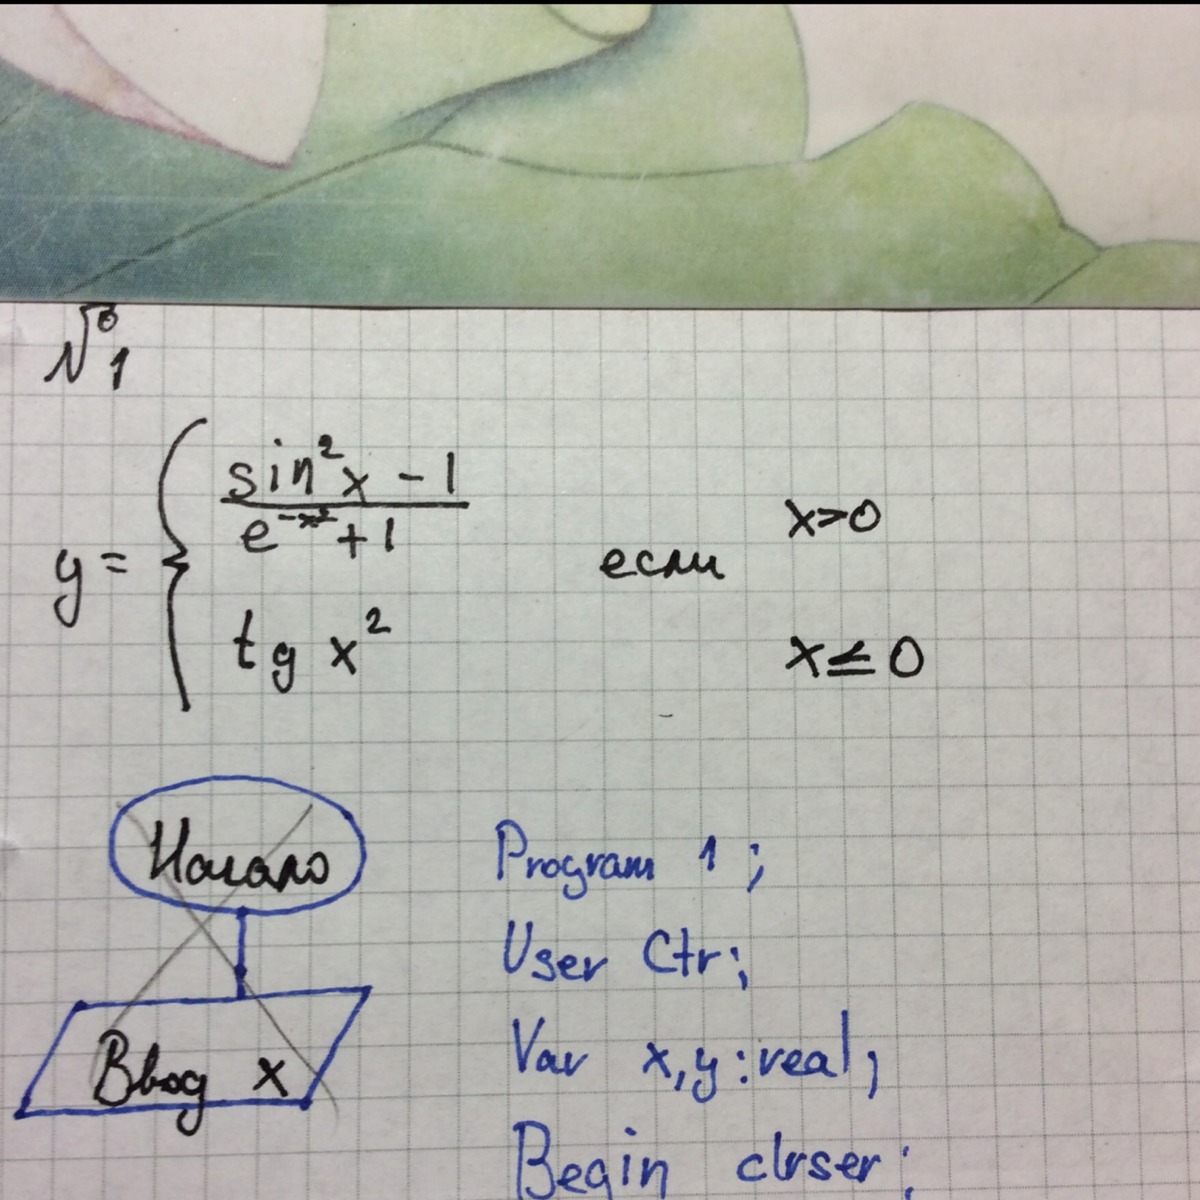 №1
y = { (sin²x - 1) / (e^(-x²) + 1)
x>0
если
tg x²
x≤0
Начало
Ввод x
Program 1;
User Ctr;
Var x,y:real;
Begin clrser;